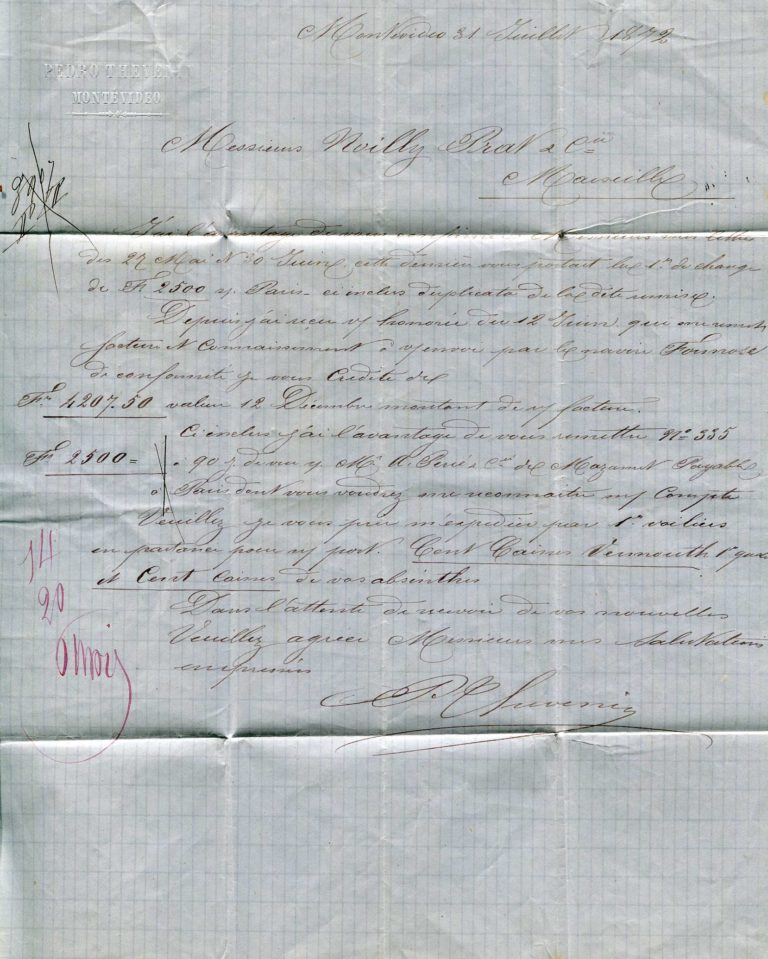 Montevideo 31 Juillet 1872
PEDRO THEVENIN
MONTEVIDEO
Messieurs Noilly Prat & Cie
Marseille
J'ai l'avantage de vous confirmer Messieurs mes lettres
des 27 Mai et 30 Juin cette dernière vous portait la 1re de change
de Fs 2500 s/ Paris ci inclus duplicata de la dite remise.
Depuis j'ai reçu v/ honorée du 12 Juin que me remet
facture et connaissement à v/ envoi par le navire Formose
de conformité je vous crédite de
Frs 4207.50 valeur 12 Décembre montant de v/ facture.
Ci inclus j'ai l'avantage de vous remettre No 335
Fs 2500 = à 90 j. de vue s/ Mrs & Cie de Mazamet Payable
à Paris dont vous voudrez me reconnaitre m/ Compte
Veuillez je vous prie m'expédier par 1er voiliers
en partance pour n/ port. Cent Caisses Vermouth
et Cent Caisses de vos absinthes
Dans l'attente de recevoir de vos nouvelles
Veuillez agréer Messieurs mes salutations
empressées
P. Thevenin
14
20
6 mois